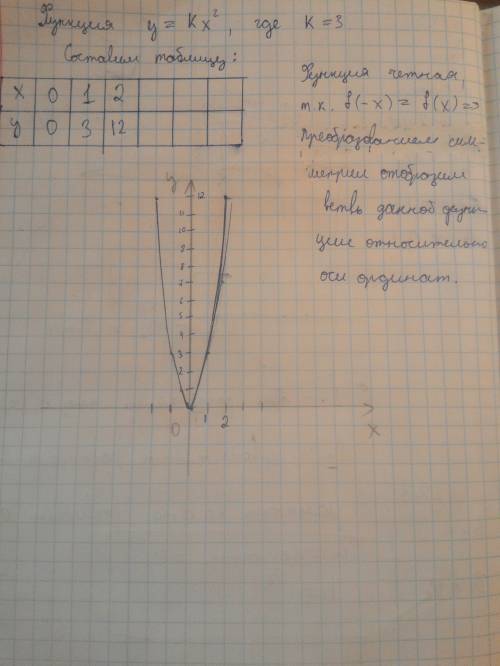 Функция y = Kx², где K = 3
Составим таблицу:
x 0 1 2
y 0 3 12
Функция четная,
т.к. f(-x) = f(x) =>
преобразованием сим-
метрии отобразим
ветвь данной функ-
ции относительно
оси ординат.
y
12
11
10
9
8
7
6
5
4
3
2
0 1 2
x